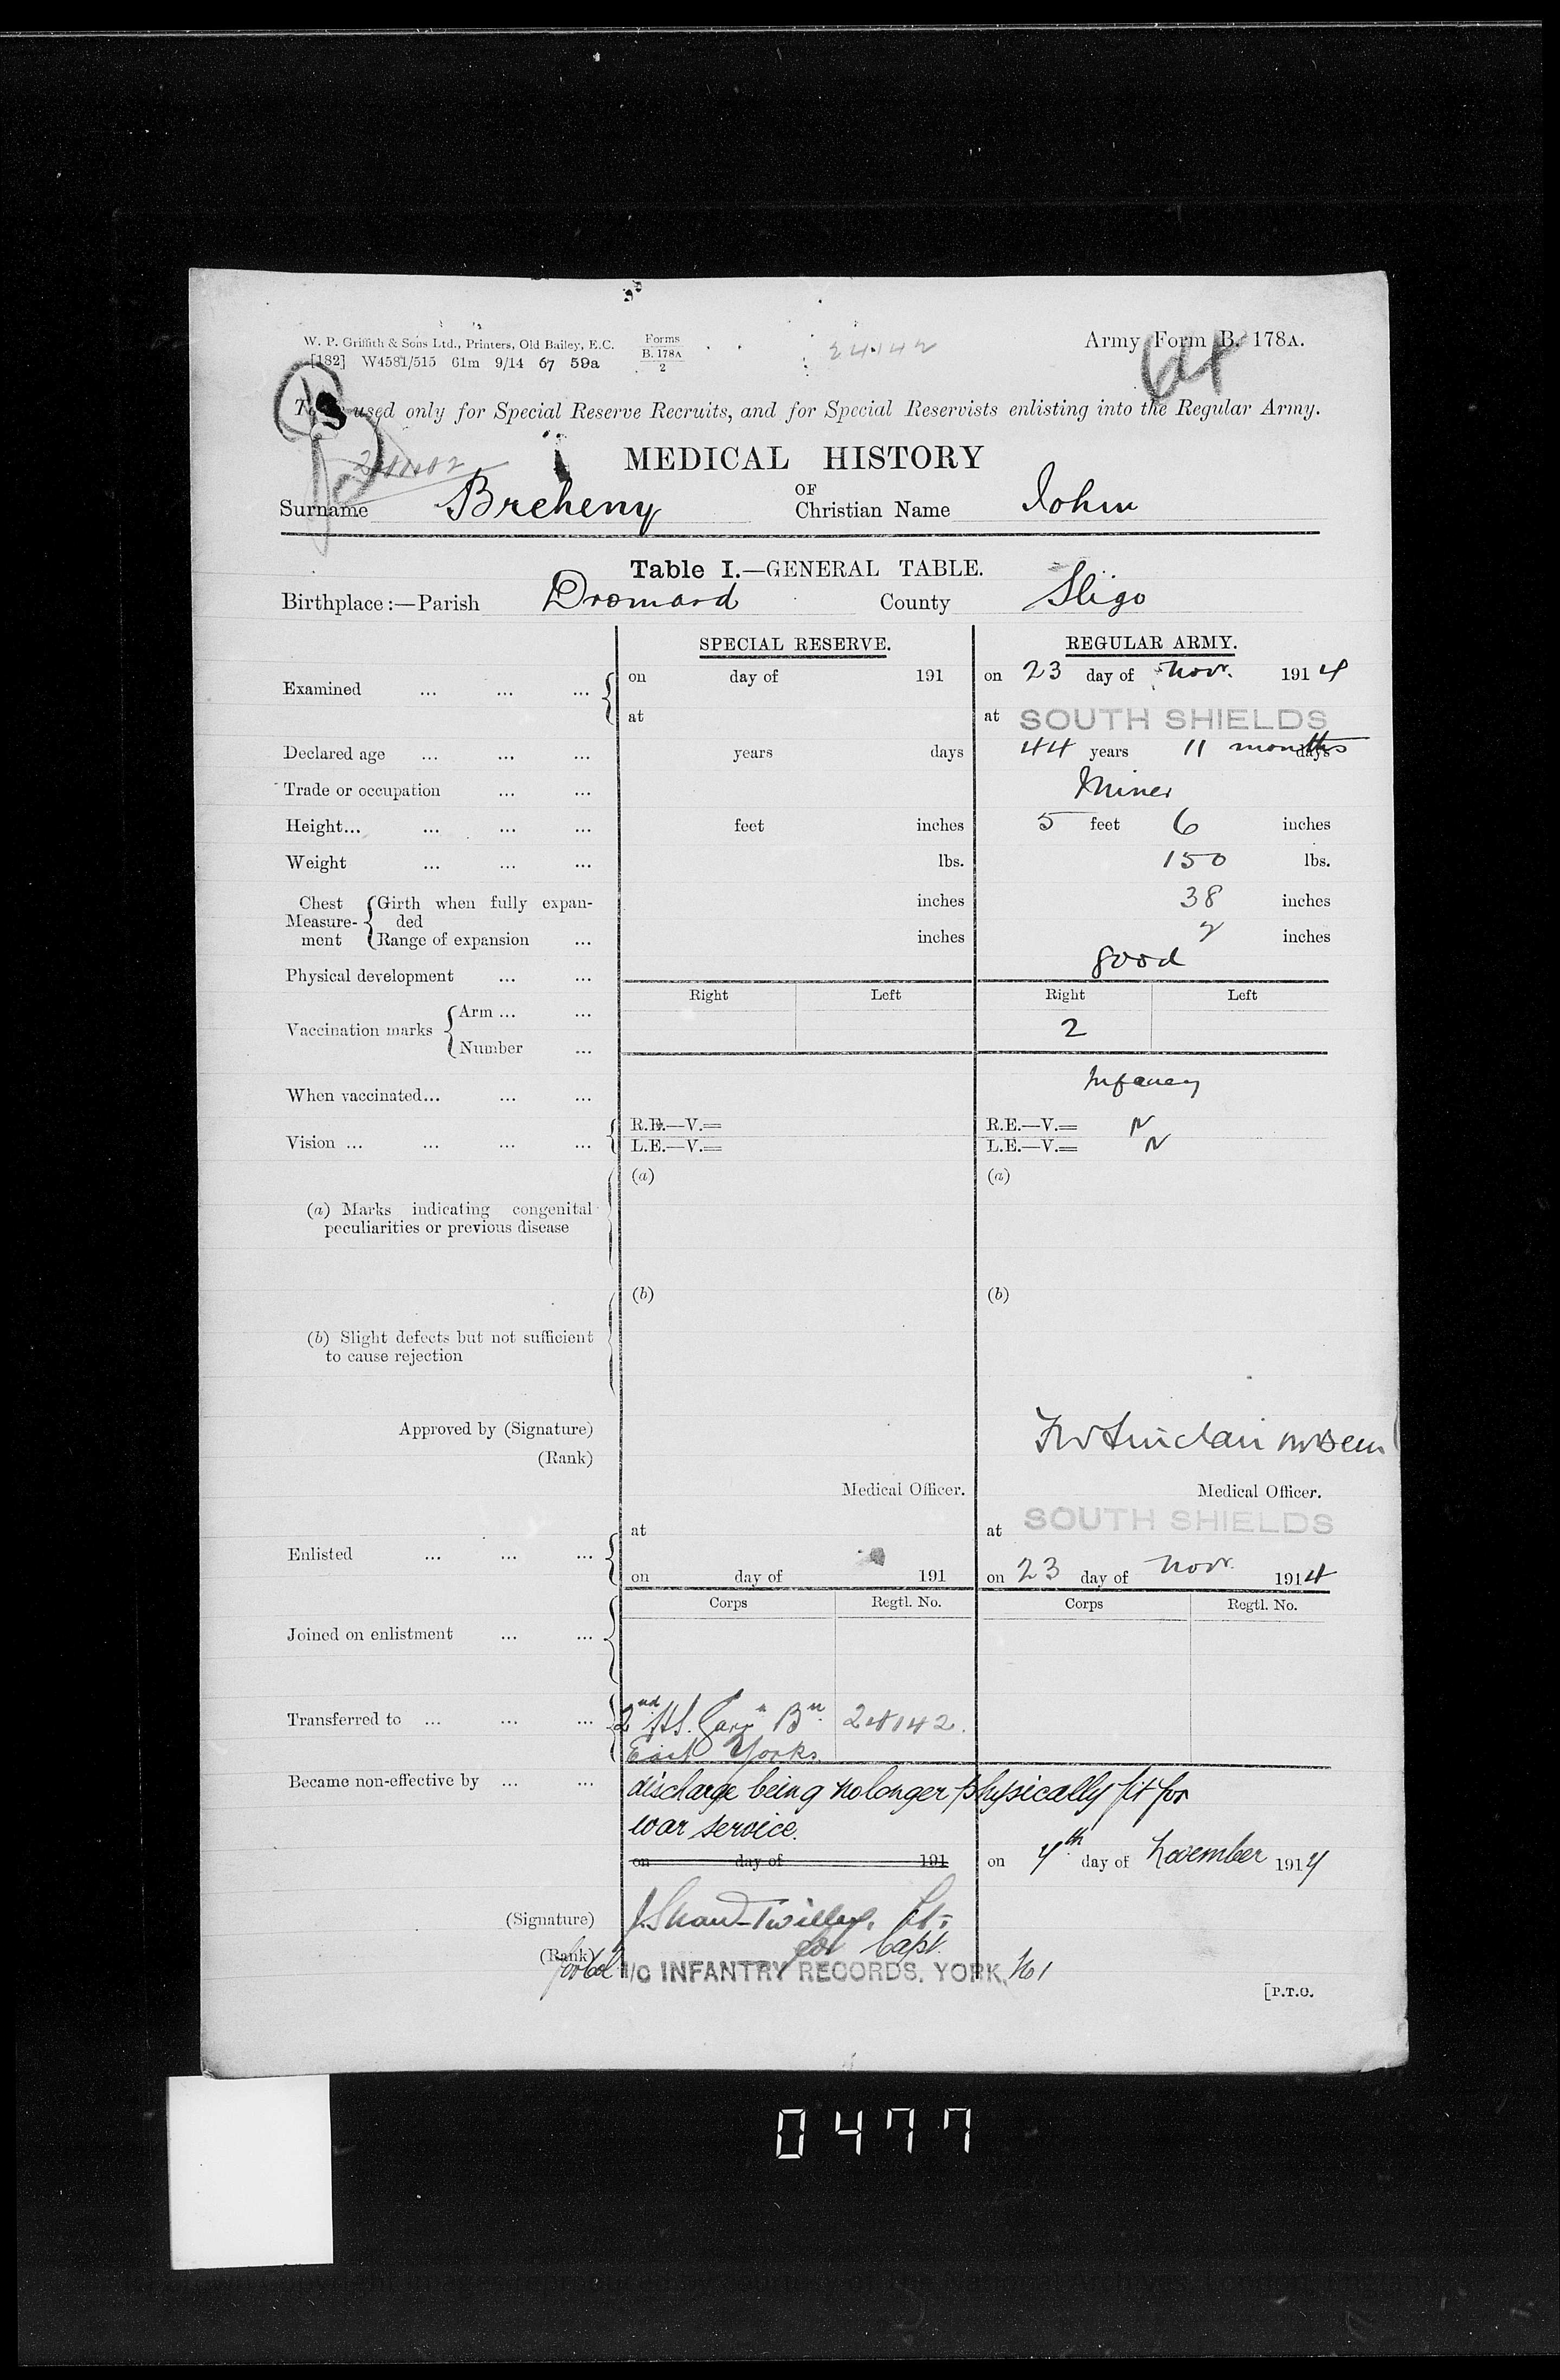 W. P. Griffith & Sons Ltd., Printers, Old Bailey, E.C.
[182] W4581/515 61m 9/14 67 59a
Forms
B. 178A
2
24142
Army Form B. 178A.
To be used only for Special Reserve Recruits, and for Special Reservists enlisting into the Regular Army.
MEDICAL HISTORY
OF
Surname Breheny Christian Name John
Table I.—GENERAL TABLE.
Birthplace:—Parish Dromard County Sligo
SPECIAL RESERVE. REGULAR ARMY.
Examined ... ... ... on day of 191 on 23 day of Novr. 1914
at at SOUTH SHIELDS
Declared age ... ... ... years days 44 years 11 months days
Trade or occupation ... ... Miner
Height... ... ... ... feet inches 5 feet 6 inches
Weight ... ... ... lbs. 150 lbs.
Chest Measurement Girth when fully expanded inches 38 inches
Range of expansion ... inches 2 inches
Physical development ... ... good
Right Left Right Left
Vaccination marks Arm ... ... 2
Number ...
When vaccinated... ... ... Infancy
Vision ... ... ... ... R.E.—V.= R.E.—V.= N
L.E.—V.= L.E.—V.= N
(a) (a)
(a) Marks indicating congenital
peculiarities or previous disease
(b) (b)
(b) Slight defects but not sufficient
to cause rejection
Approved by (Signature)
(Rank)
Medical Officer. Medical Officer.
at at SOUTH SHIELDS
Enlisted ... ... ...
on day of 191 on 23 day of Novr. 1914
Corps Regtl. No. Corps Regtl. No.
Joined on enlistment ... ...
Transferred to ... ... ... 2nd Garrn Bn. 24142.
East Yorks
Became non-effective by ... ... discharge being no longer physically fit for
war service.
on day of 191 on day of November 191
(Signature) J. Shaw-Twilley, Lt.
for Capt.
(Rank)
for Col I/C INFANTRY RECORDS, YORK, No 1
[P.T.O.
0477